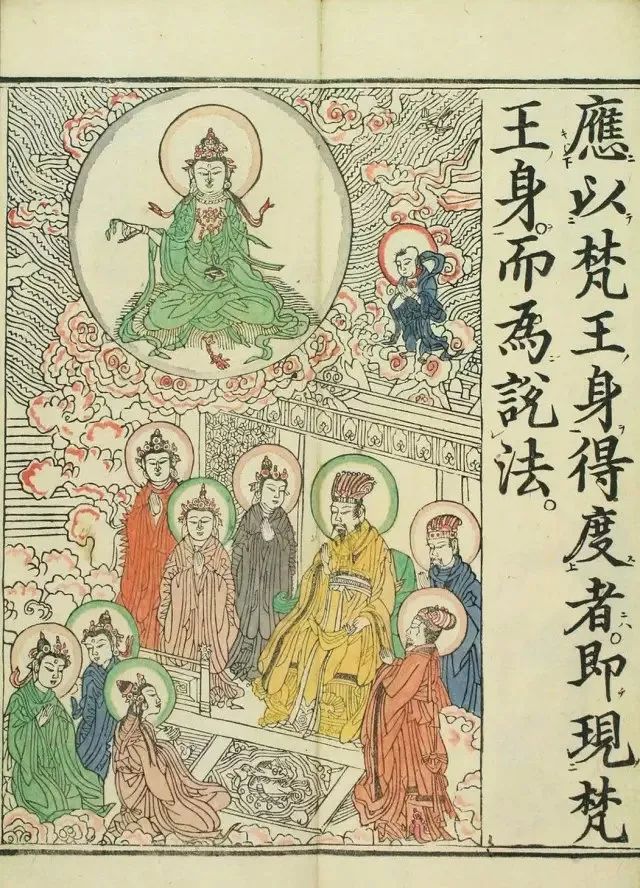 應以梵王身得度者。即現梵
王身。而爲說法。